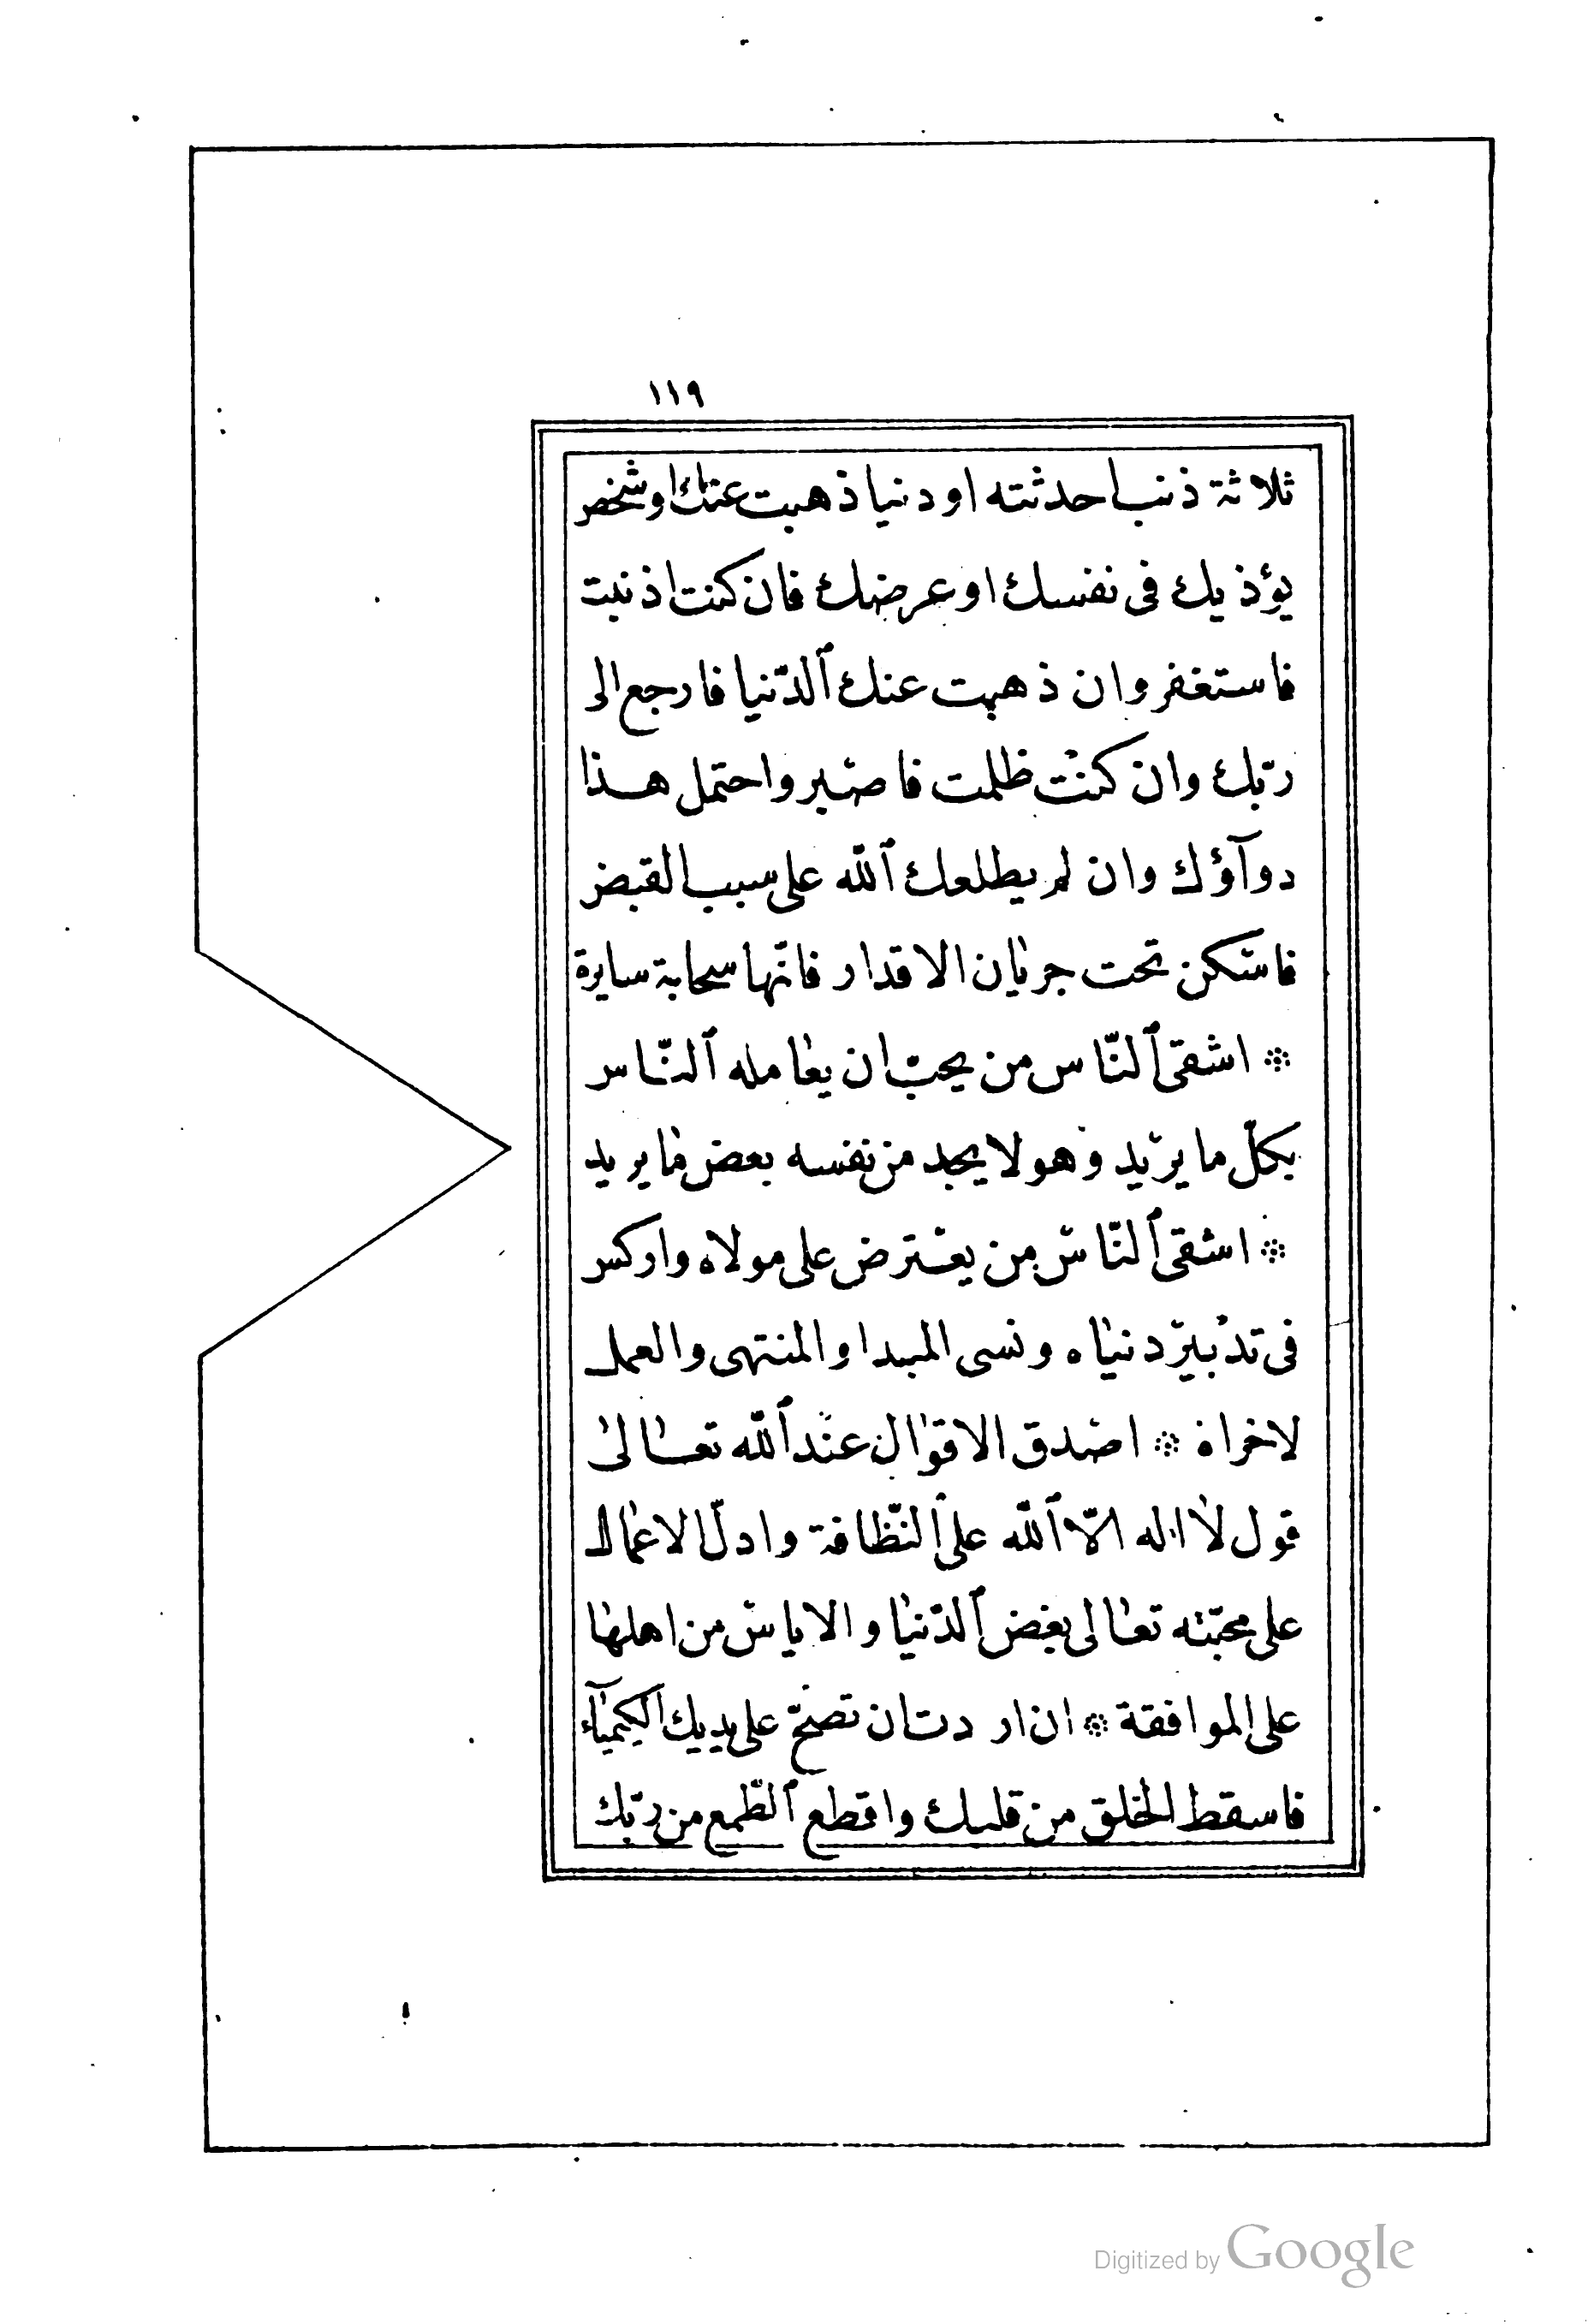 ١١٩
ثلاثة ذنب احدثته او دنيا ذهبت عنك او شخص
يؤذيك فى نفسك او عرضك فان كنت اذنبت
فاستغفر وان ذهبت عنك ٱلدّنيا فارجع الى
ربّك وان كنت ظلمت فاصبر واحتمل هذا
دوآؤك وان لم يطلعك ٱللّه على سبب القبض
فاسكن تحت جريان الاقدار فانّها سحابة سايرة
❊ اشقى ٱلنّاس من يحبّ ان يعامله ٱلنّاس
بكلّ ما يريد وهو لا يجد من نفسه بعض ما يريد
❊ اشقى ٱلنّاس من يعترض على مولاه واركس
فى تدبير دنياه ونسى المبدا والمنتهى والعمل
لاخراه ❊ اصدق الاقوال عند ٱللّه تعالى
قول لا اله الّا ٱللّه على ٱلنّظافة وادلّ الاعمال
على محبّته تعالى بغض ٱلدّنيا والاياس من اهلها
على الموافقة ❊ ان اردت ان تصحّ على يديك الكيميآء
فاسقط الخلق من قلبك واقطع ٱلطّمع من ربّك
Digitized by Google